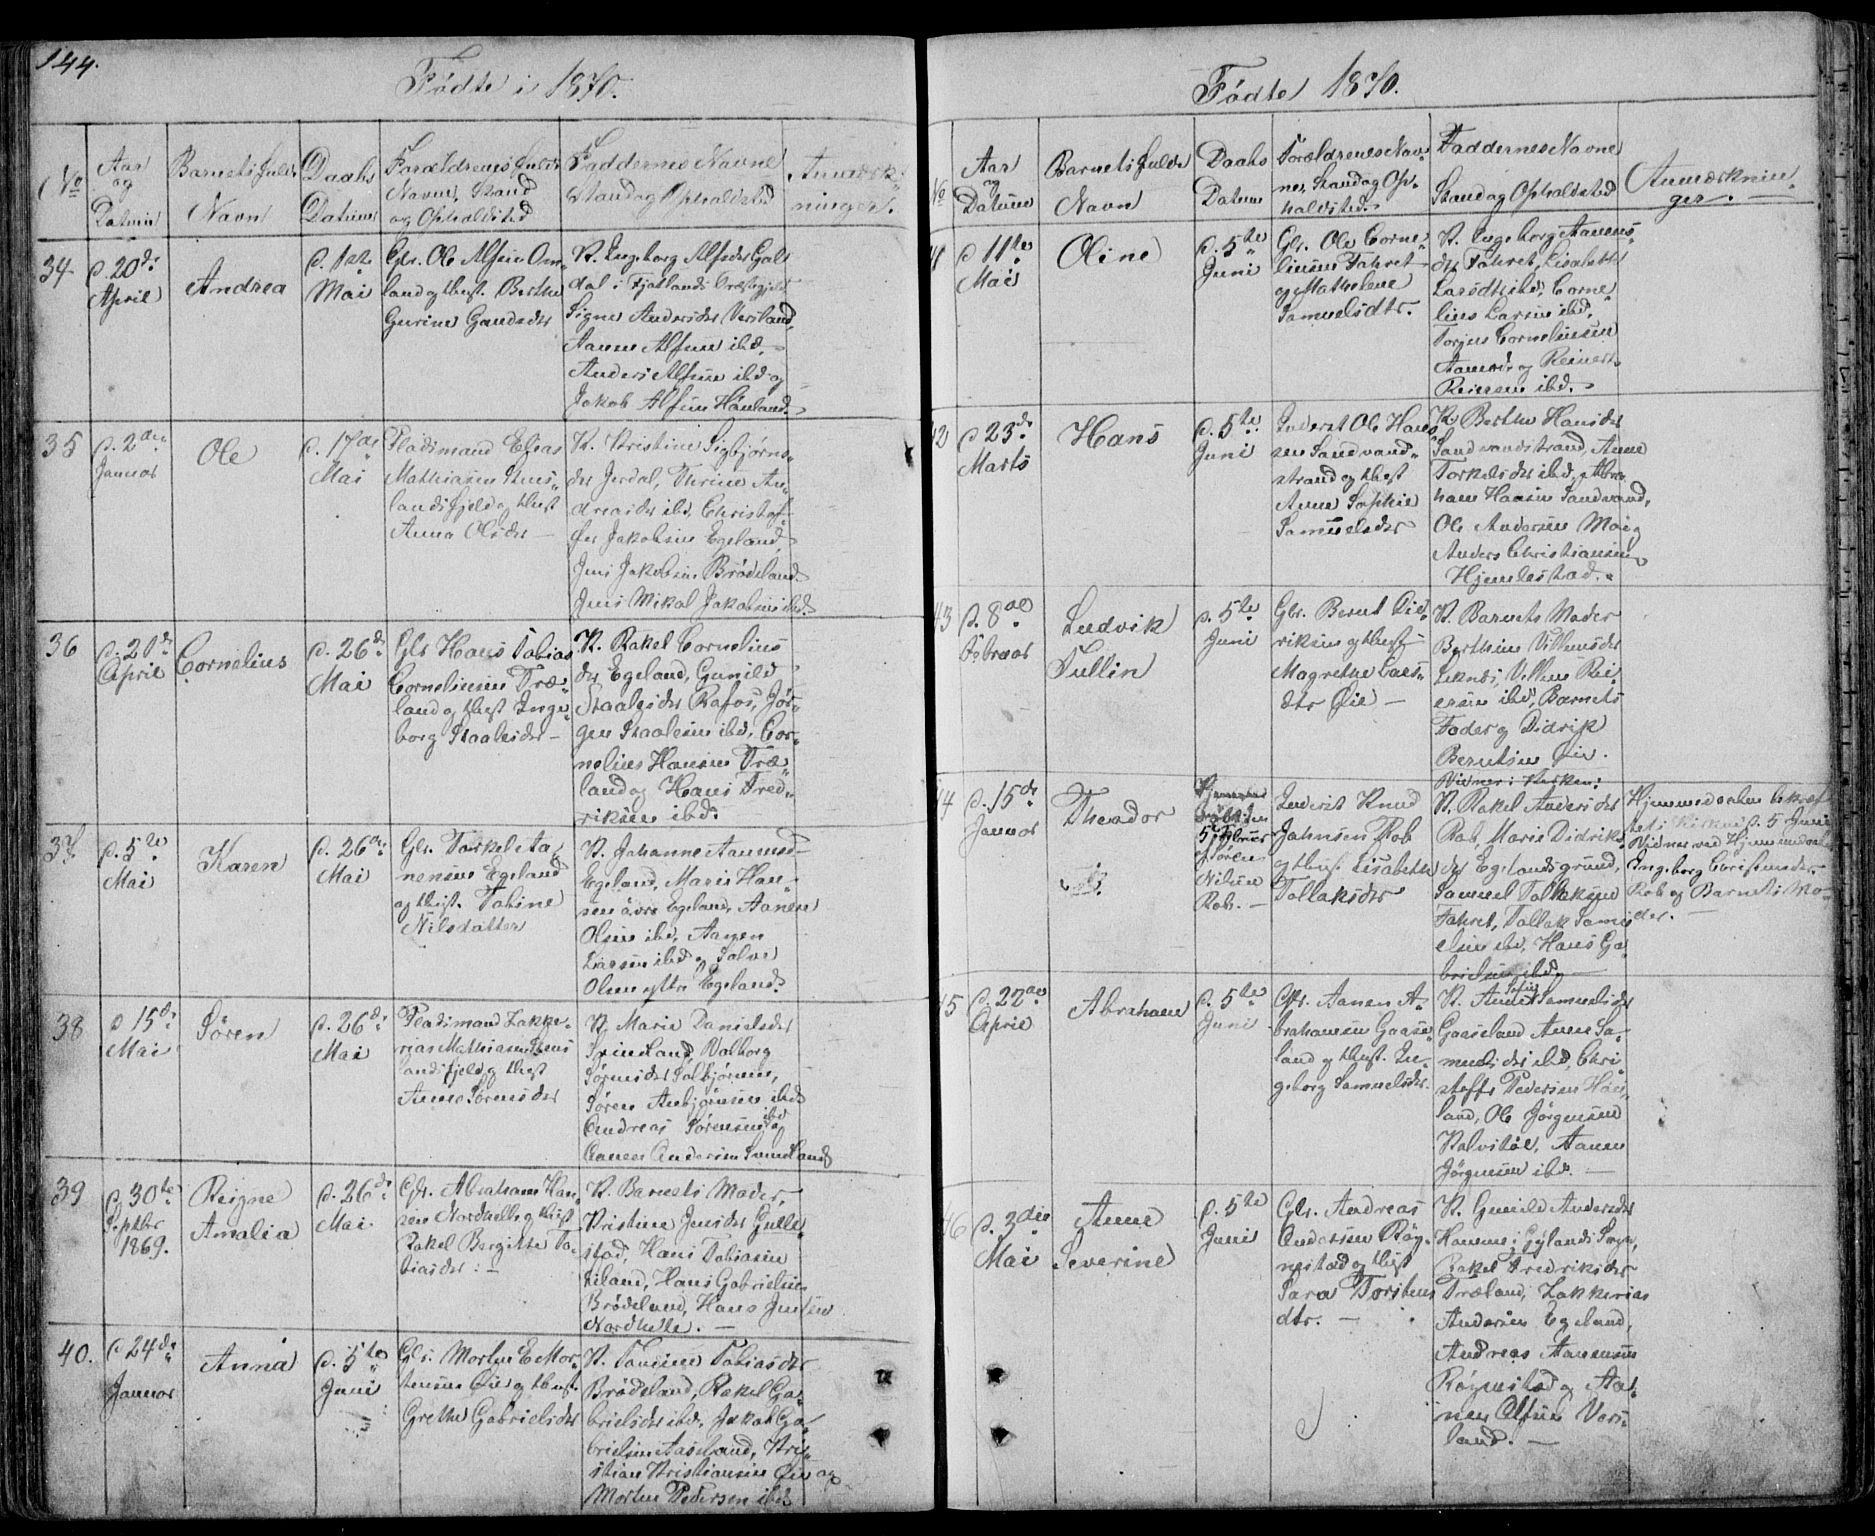 144.
Fødte i 1870.
No
Aar og Datum
Barnets fulde Navn
Daabs Datum
Forældrenes fulde Navne, Stand og Opholdsted
Faddernes Navne Stand og Opholdsted
Anmærkninger.
34
d. 20de April
Andrea
d. 1ste Mai
Gbr. Ole Alfsen Om-
land og Hust. Berthe
Gurine Gundsdtr
K. Engeborg Alfsdtr Gols
dal i Fjotlands Præstegjeld
Signe Andersdtr Versland,
Aanen Alfsen ibd,
Anders Alfsen ibd og
Jakob Alfsen Hønland.
35
d. 2den Januar
Ole
d. 17de Mai
Pladsmand Elias
Mathiasen Stens-
landsfjeld og Hust
Anna Olsdtr
K. Kristine Sigbjørns-
dtr Jerdal, Thrine An-
dreasdtr ibd, Christof-
fer Jakobsen Egeland,
Jens Jakobsen Brødeland
Jens Mikal Jakobsen ibd.
36
d. 21de April
Cornelius
d. 26de Mai
Gbr Hans Tobias
Corneliusen Træ-
land og Hust Inge-
borg Staalesdtr
K. Rakel Cornelius
dtr Egeland, Gunild
Staalesdtr Rafos, Jør-
gen Staalesen ibd, Cor-
nelius Hansen Træ-
land og Hans Fred-
riksen ibd.
37
d. 5te Mai
Karen
d. 26de Mai
Gbr. Torkel Aa-
nensen Egeland
og Hust. Tobine
Nilsdatter
K. Johanne Aanensd
Egeland, Maris Han-
sen øvre Egeland, Aanen
Olsen ibd, Aanen
Larsen ibd og Salve
Olsen yttre Egeland.
38
d 15de Mai
Søren
d. 26de Mai
Pladsmand Zakke-
rias Mathiasen Stens
landsfjeld og Hust
Anne Sørensdtr
K. Marie Danielsdtr
Svindland, Valborg
Sørensdtr Solbjørnen,
Søren Anbjørnsen ibd
Andreas Sørensen ibd og
Aanen Andersen Svindland
39
d. 30te Septbr 1869.
Reigne Amalia
d. 26de Mai
Gbr. Abraham Han-
sen Nordhelle og Hust
Rakel Bergitte To-
biasdtr.
K. Barnets Moder,
Kristine Jensdtr Gulle-
stad, Hans Tobiasen
Eiland, Hans Gabrielsen
Brødeland, Hans Jensen
Nordhelle.
40.
d 24de Januar
Anna
d. 5te Juni
Gbr. Morten E Mor-
tensen Øie og Hust.
Grethe Gabrielsdtr
K. Tomine Tobiasdtr
Brødeland, Rakel Ga-
brielsdtr ibd, Jakob Ga-
brielsen Aaseland, Kri-
stian Kristiansen Øie og
Morten Pedersen ibd
Fødte 1870.
No
Aar og Datum
Barnets fulde Navn
Daabs Datum
Forældrenes Nav-
ne, Stand og Op-
holdsted.
Faddernes Navne
Stand og Opholdsted
Anmærknin-
ger.
41
d 11te Mai
Oline
d. 5te Juni
Gbr. Ole Corne-
liusen Fahret
og Mathelene
Samuelsdtr.
K. Engeborg Aanens-
dtr Fahret, Lisabeth
Larsdtr ibd, Corne-
lius Larsen ibd,
Torjus Corneliusen
Aamod og Reinert
Reiersen ibd.
42
d 23de Marts
Hans
d. 5te Juni
Inderst Ole Hans-
sen Sandvand-
strand og Hust
Anne Sophie
Samuelsdtr
K Berthe Hansdtr
Sandvandstrand, Anne
Torkelsdtr ibd, Abra-
ham Hansen Sandvand,
Ole Andersen Moi og
Anders Christiansen
Hjemlestad.
43
d. 8de Februar
Ludvik
Tullin
d. 5te Juni
Gbr. Bernt Did-
riksen og Hust
Magrethe Lars-
dtr Øie
K. Barnets Moder
Berthine Villumsdtr
Leknes, Villum Rei-
ersen ibd, Barnets
Fader og Didrik
Berntsen Øie.
44
d. 15de Januar
Theador
Søren
Nilsen
Rob.
Inderst Knud
Jahnsen Rob
og Hust. Lisabeth
Tollaksdtr
Vidner i Kirken:
K. Rakel Andersdtr
Rob, Marie Didriks-
dtr Egelandsgrund,
Samuel Tollaksen
Fahret, Tollak Samu-
elsen ibd, Hans Ga-
brielsen ibd
Hjemmedaaben bekræf-
tet i Kirken d. 5 Juni
Vidner ved Hjemmedaaben
Engeborg Christensdtr
Rob og Barnets Mo-
der.
45
d. 22de April
Abraham
d. 5te Juni
Gbr. Aanen A-
brahamsen Gaase-
land og Hust. En-
geborg Samuelsdtr.
K. Anne Sofie Samuelsdtr
Gaaseland Anne Sa-
muelsdtr ibd, Chri-
stoffer Pedersen Høi-
land, Ole Jørgensen
Kalvstøl, Aanen
Jørgensen ibd.
46
d. 3die Mai
Anne
Severine
d. 5te Juni
Gbr. Andreas
Andersen Røy-
nestad og Hust
Sara Torstens
dtr.
K. Gunild Andersdtr
Homme i Gylands Sogn,
Rakel Fredriksdtr
Træland, Zakkerias
Andersen Egeland,
Andreas Aanensen
Røynestad og Aa-
nen Alfsen Vers-
land.